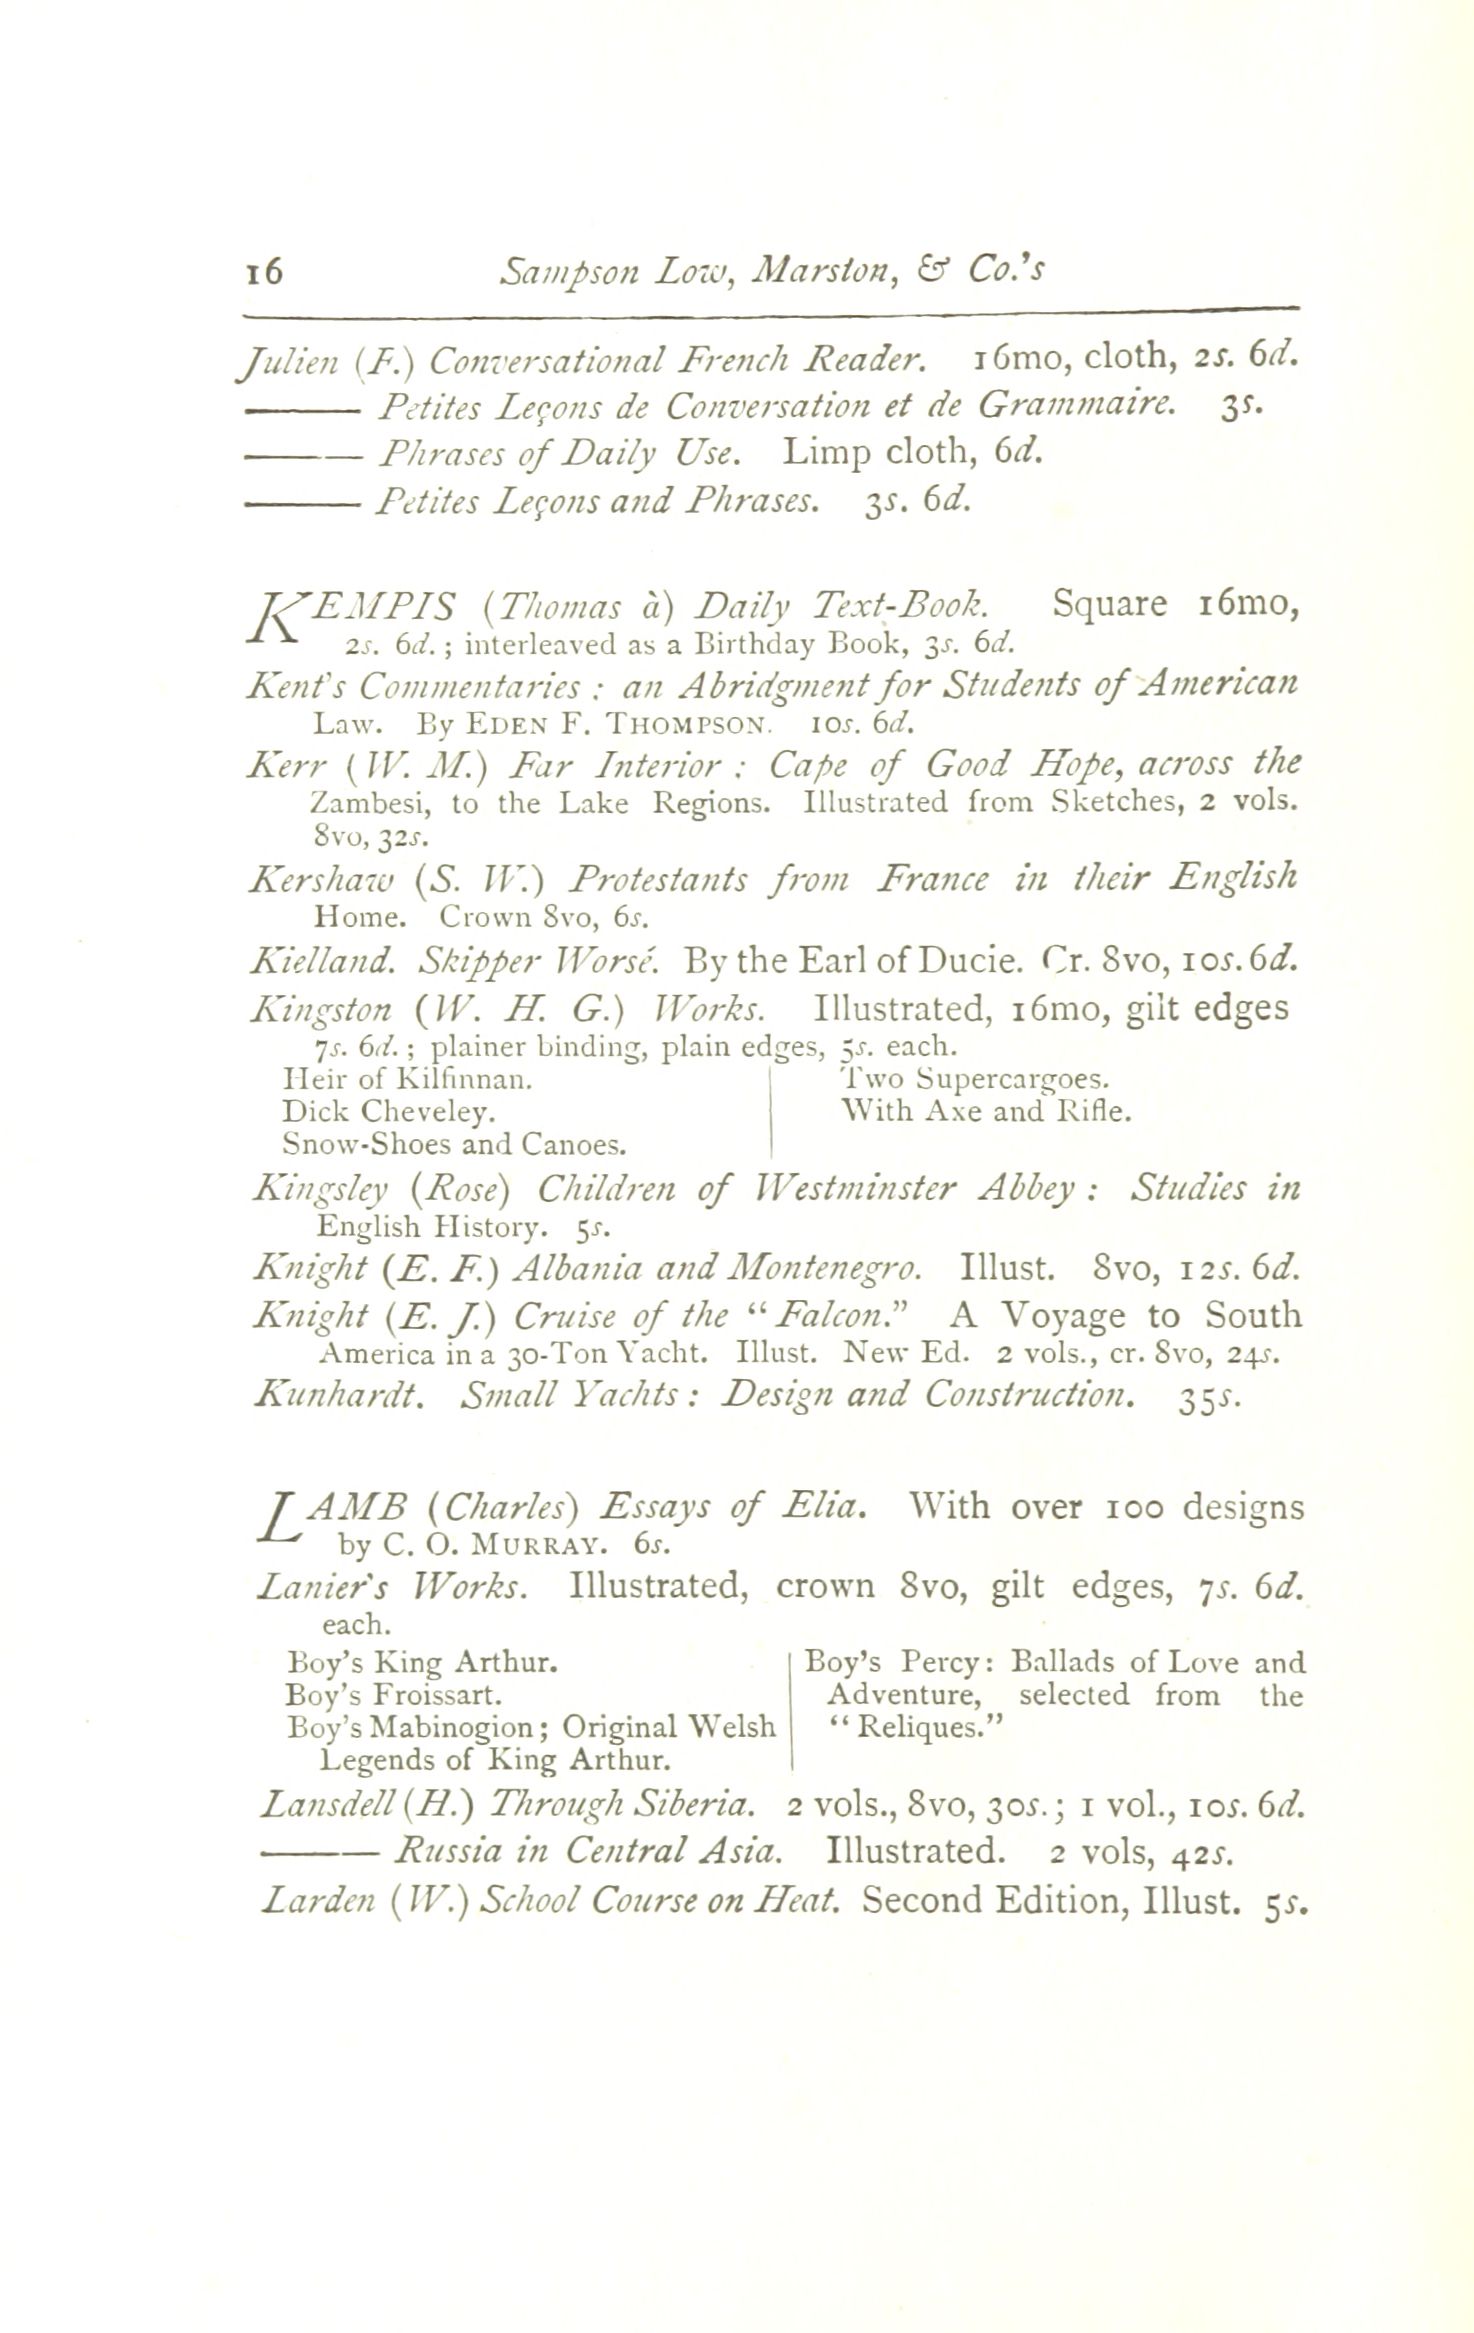 16 Sampson Low, Marston, & Co.'s
Julien (F.) Conversational French Reader. 16mo, cloth, 2s. 6d.
——— Petites Leçons de Conversation et de Grammaire. 3s.
——— Phrases of Daily Use. Limp cloth, 6d.
——— Petites Leçons and Phrases. 3s. 6d.
KEMPIS (Thomas à) Daily Text-Book. Square 16mo,
2s. 6d.; interleaved as a Birthday Book, 3s. 6d.
Kent's Commentaries: an Abridgment for Students of American
Law. By EDEN F. THOMPSON. 10s. 6d.
Kerr (W. M.) Far Interior: Cape of Good Hope, across the
Zambesi, to the Lake Regions. Illustrated from Sketches, 2 vols.
8vo, 32s.
Kershaw (S. W.) Protestants from France in their English
Home. Crown 8vo, 6s.
Kielland. Skipper Worsé. By the Earl of Ducie. Cr. 8vo, 10s. 6d.
Kingston (W. H. G.) Works. Illustrated, 16mo, gilt edges
7s. 6d.; plainer binding, plain edges, 5s. each.
Heir of Kilfinnan.
Dick Cheveley.
Snow-Shoes and Canoes.
Two Supercargoes.
With Axe and Rifle.
Kingsley (Rose) Children of Westminster Abbey: Studies in
English History. 5s.
Knight (E. F.) Albania and Montenegro. Illust. 8vo, 12s. 6d.
Knight (E. J.) Cruise of the "Falcon." A Voyage to South
America in a 30-Ton Yacht. Illust. New Ed. 2 vols., cr. 8vo, 24s.
Kunhardt. Small Yachts: Design and Construction. 35s.
LAMB (Charles) Essays of Elia. With over 100 designs
by C. O. MURRAY. 6s.
Lanier's Works. Illustrated, crown 8vo, gilt edges, 7s. 6d.
each.
Boy's King Arthur.
Boy's Froissart.
Boy's Mabinogion; Original Welsh
Legends of King Arthur.
Boy's Percy: Ballads of Love and
Adventure, selected from the
"Reliques."
Lansdell (H.) Through Siberia. 2 vols., 8vo, 30s.; 1 vol., 10s. 6d.
——— Russia in Central Asia. Illustrated. 2 vols, 42s.
Larden (W.) School Course on Heat. Second Edition, Illust. 5s.